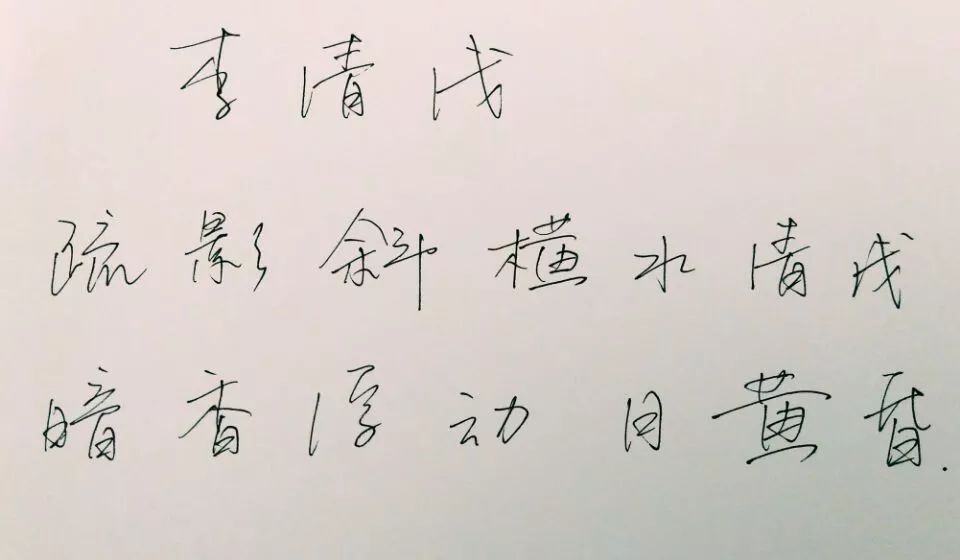 李清浅
疏影斜横水清浅
暗香浮动月黄昏.